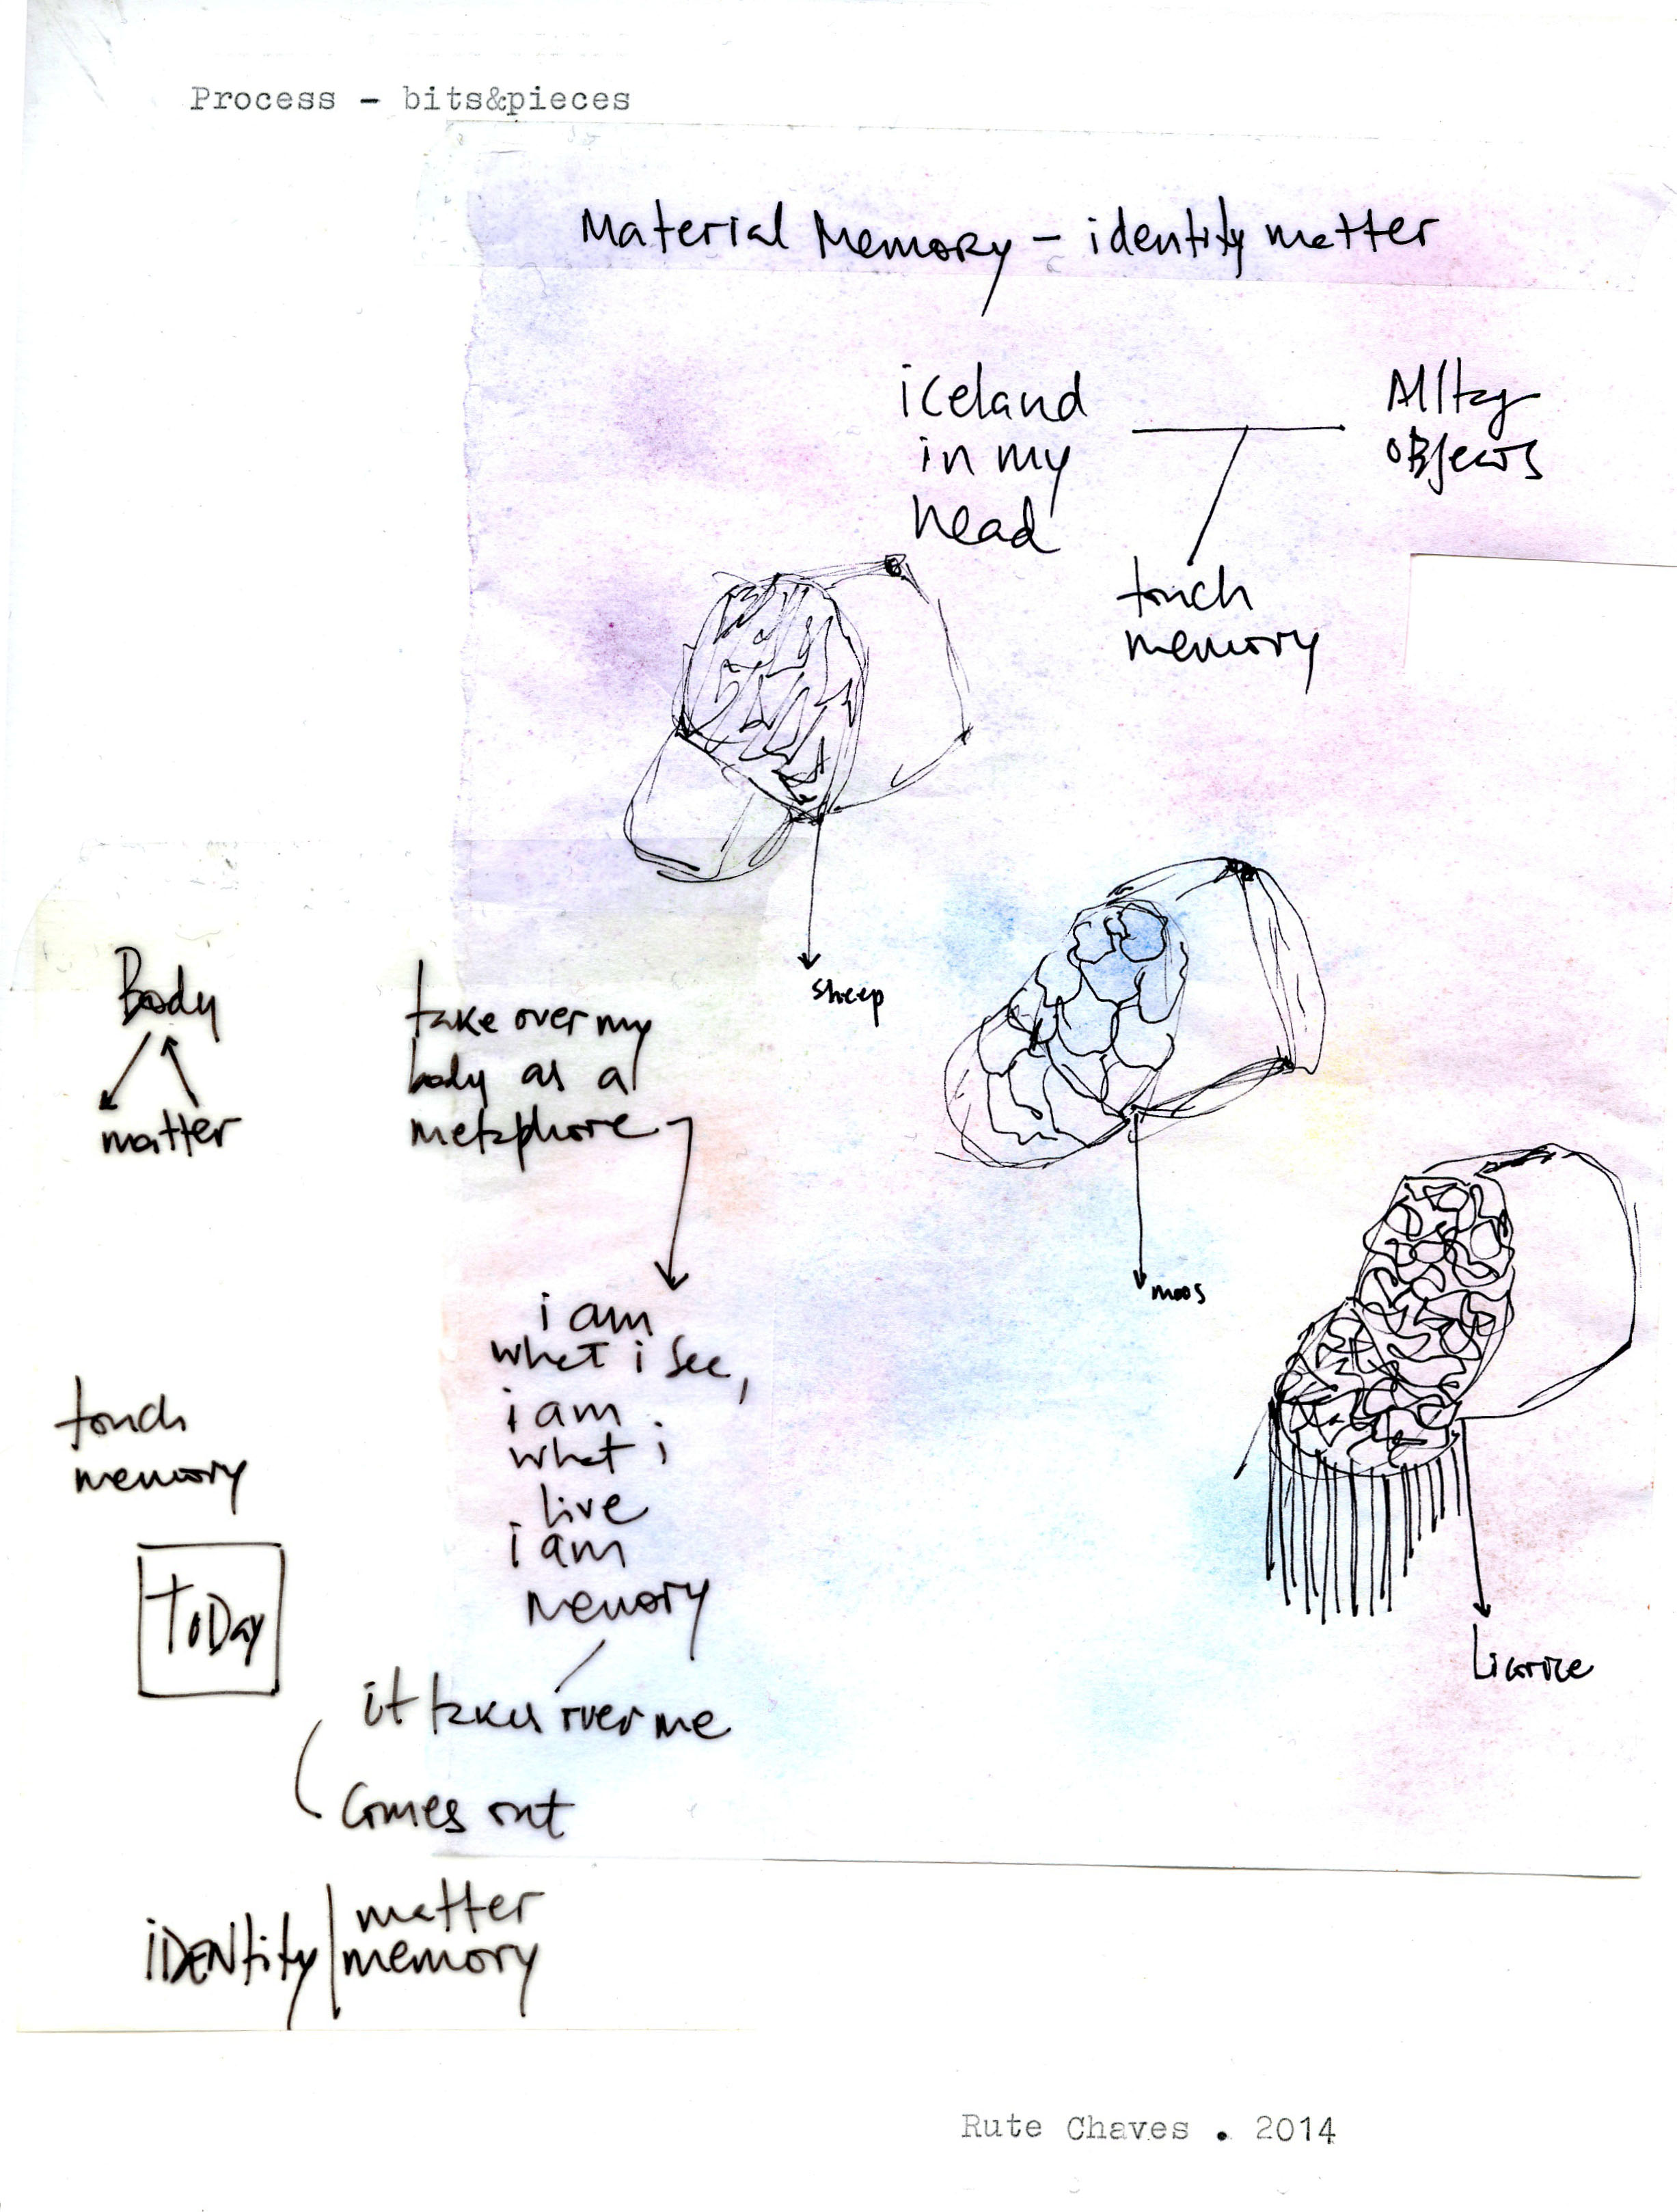 Process - bits&pieces
Material Memory - identity matter
iceland
in my
head
objects
touch
memory
sheep
Body
matter
take over my
body as a
metaphore
moos
i am
what i see,
i am
what i
live
i am
memory
touch
memory
ToDay
it takes over me
Comes out
Licorice
iDENtity | matter
memory
Rute Chaves . 2014